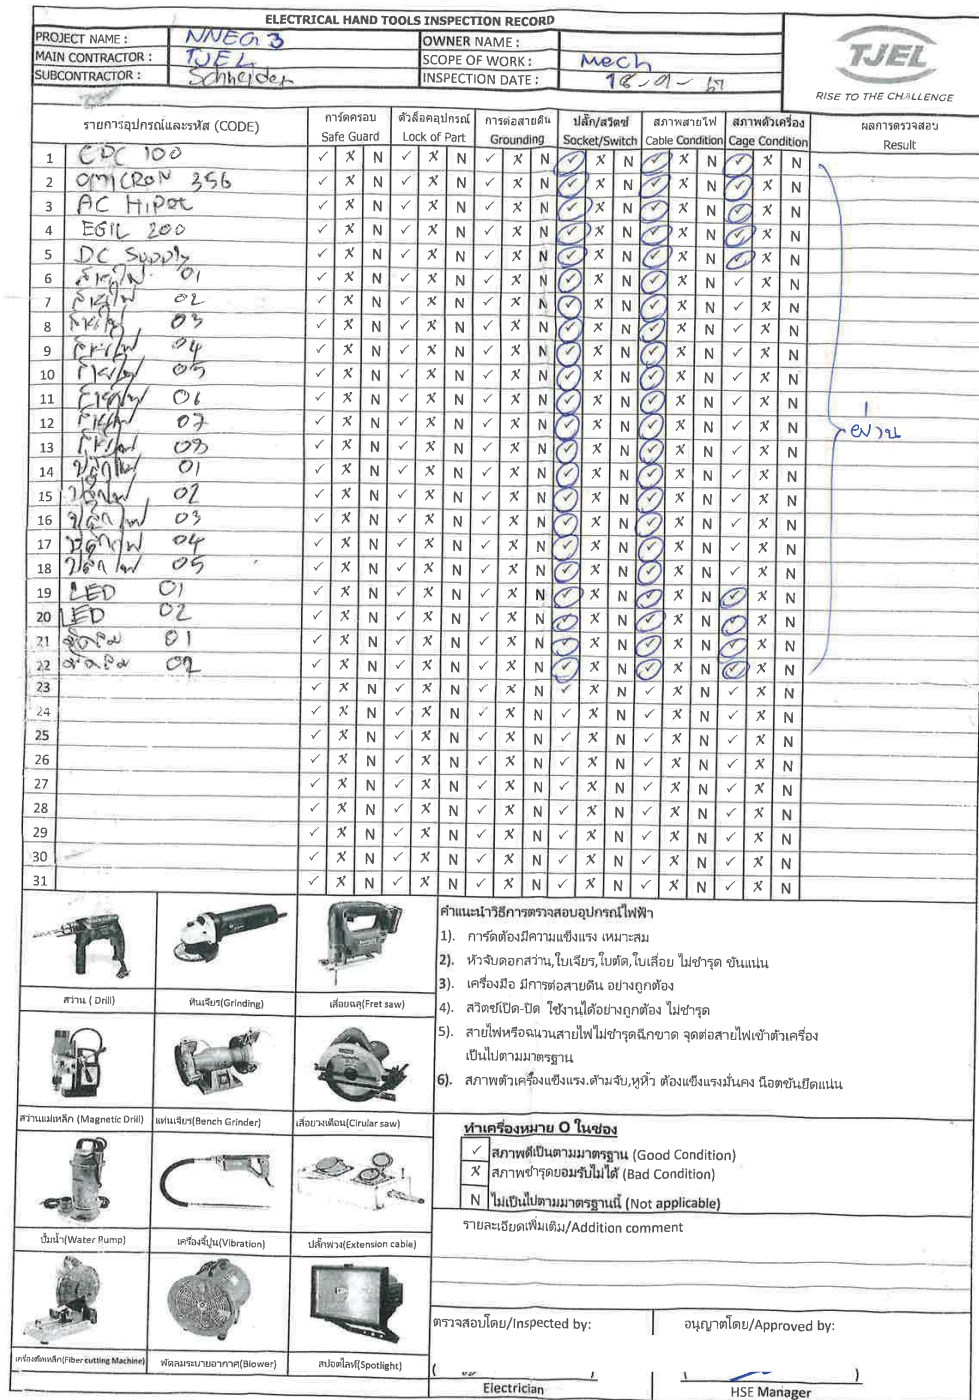 ELECTRICAL HAND TOOLS INSPECTION RECORD
PROJECT NAME : NNEG 3 OWNER NAME :
MAIN CONTRACTOR : TJEL SCOPE OF WORK : Mech
SUBCONTRACTOR : Schneider INSPECTION DATE : 18-9-67
TJEL
RISE TO THE CHALLENGE
รายการอุปกรณ์และรหัส (CODE) การ์ดครอบ ตัวล็อคอุปกรณ์ การต่อสายดิน ปลั๊ก/สวิตซ์ สภาพสายไฟ สภาพตัวเครื่อง ผลการตรวจสอบ
Safe Guard Lock of Part Grounding Socket/Switch Cable Condition Cage Condition Result
1 CPC 100 ✓ X N ✓ X N ✓ X N ✓ X N ✓ X N ✓ X N
2 OMICRON 356 ✓ X N ✓ X N ✓ X N ✓ X N ✓ X N ✓ X N
3 AC HiPot ✓ X N ✓ X N ✓ X N ✓ X N ✓ X N ✓ X N
4 EGIL 200 ✓ X N ✓ X N ✓ X N ✓ X N ✓ X N ✓ X N
5 DC Supply ✓ X N ✓ X N ✓ X N ✓ X N ✓ X N ✓ X N
6 สายไฟ 01 ✓ X N ✓ X N ✓ X N ✓ X N ✓ X N ✓ X N
7 สายไฟ 02 ✓ X N ✓ X N ✓ X N ✓ X N ✓ X N ✓ X N
8 สายไฟ 03 ✓ X N ✓ X N ✓ X N ✓ X N ✓ X N ✓ X N
9 สายไฟ 04 ✓ X N ✓ X N ✓ X N ✓ X N ✓ X N ✓ X N
10 สายไฟ 05 ✓ X N ✓ X N ✓ X N ✓ X N ✓ X N ✓ X N
11 สายไฟ 06 ✓ X N ✓ X N ✓ X N ✓ X N ✓ X N ✓ X N
12 สายไฟ 07 ✓ X N ✓ X N ✓ X N ✓ X N ✓ X N ✓ X N
13 สายไฟ 08 ✓ X N ✓ X N ✓ X N ✓ X N ✓ X N ✓ X N ผ่าน
14 ปลั๊กไฟ 01 ✓ X N ✓ X N ✓ X N ✓ X N ✓ X N ✓ X N
15 ปลั๊กไฟ 02 ✓ X N ✓ X N ✓ X N ✓ X N ✓ X N ✓ X N
16 ปลั๊กไฟ 03 ✓ X N ✓ X N ✓ X N ✓ X N ✓ X N ✓ X N
17 ปลั๊กไฟ 04 ✓ X N ✓ X N ✓ X N ✓ X N ✓ X N ✓ X N
18 ปลั๊กไฟ 05 ✓ X N ✓ X N ✓ X N ✓ X N ✓ X N ✓ X N
19 LED 01 ✓ X N ✓ X N ✓ X N ✓ X N ✓ X N ✓ X N
20 LED 02 ✓ X N ✓ X N ✓ X N ✓ X N ✓ X N ✓ X N
21 พัดลม 01 ✓ X N ✓ X N ✓ X N ✓ X N ✓ X N ✓ X N
22 พัดลม 02 ✓ X N ✓ X N ✓ X N ✓ X N ✓ X N ✓ X N
23 ✓ X N ✓ X N ✓ X N ✓ X N ✓ X N ✓ X N
24 ✓ X N ✓ X N ✓ X N ✓ X N ✓ X N ✓ X N
25 ✓ X N ✓ X N ✓ X N ✓ X N ✓ X N ✓ X N
26 ✓ X N ✓ X N ✓ X N ✓ X N ✓ X N ✓ X N
27 ✓ X N ✓ X N ✓ X N ✓ X N ✓ X N ✓ X N
28 ✓ X N ✓ X N ✓ X N ✓ X N ✓ X N ✓ X N
29 ✓ X N ✓ X N ✓ X N ✓ X N ✓ X N ✓ X N
30 ✓ X N ✓ X N ✓ X N ✓ X N ✓ X N ✓ X N
31 ✓ X N ✓ X N ✓ X N ✓ X N ✓ X N ✓ X N
สว่าน ( Drill) หินเจียร(Grinding) เลื่อยฉลุ(Fret saw)
สว่านแม่เหล็ก (Magnetic Drill) แท่นเจียร(Bench Grinder) เลื่อยวงเดือน(Cirular saw)
ปั๊มน้ำ(Water Pump) เครื่องจี้ปูน(Vibration) ปลั๊กพ่วง(Extension cable)
เครื่องตัดเหล็ก(Fiber cutting Machine) พัดลมระบายอากาศ(Blower) สปอตไลท์(Spotlight)
คำแนะนำวิธีการตรวจสอบอุปกรณ์ไฟฟ้า
1). การ์ดต้องมีความแข็งแรง เหมาะสม
2). หัวจับดอกสว่าน,ใบเจียร,ใบตัด,ใบเลื่อย ไม่ชำรุด ขันแน่น
3). เครื่องมือ มีการต่อสายดิน อย่างถูกต้อง
4). สวิตซ์เปิด-ปิด ใช้งานได้อย่างถูกต้อง ไม่ชำรุด
5). สายไฟหรือฉนวนสายไฟไม่ชำรุดฉีกขาด จุดต่อสายไฟเข้าตัวเครื่อง
เป็นไปตามมาตรฐาน
6). สภาพตัวเครื่องแข็งแรง.ด้ามจับ,หูหิ้ว ต้องแข็งแรงมั่นคง น็อตขันยึดแน่น
ทำเครื่องหมาย O ในช่อง
✓ สภาพดีเป็นตามมาตรฐาน (Good Condition)
X สภาพชำรุดยอมรับไม่ได้ (Bad Condition)
N ไม่เป็นไปตามมาตรฐานนี้ (Not applicable)
รายละเอียดเพิ่มเติม/Addition comment
ตรวจสอบโดย/Inspected by: อนุญาตโดย/Approved by:
( ) ( )
Electrician HSE Manager